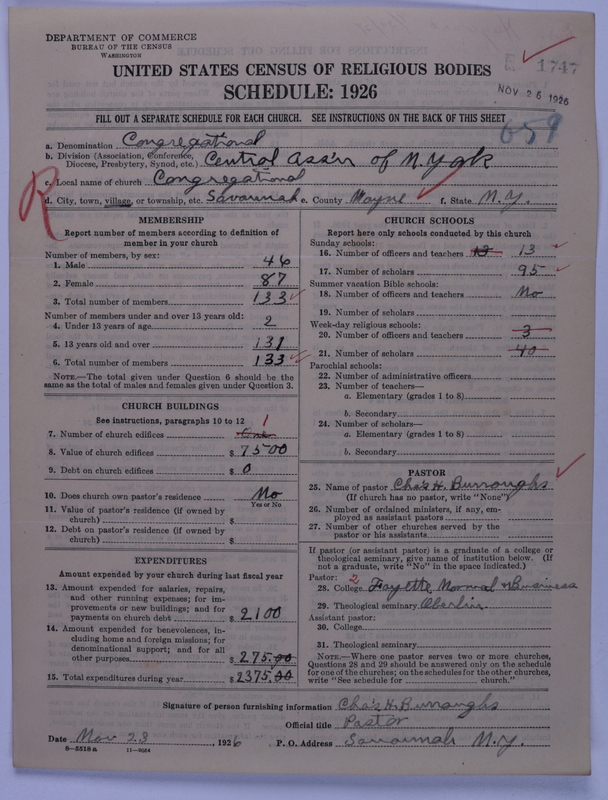 DEPARTMENT OF COMMERCE
BUREAU OF THE CENSUS
WASHINGTON
UNITED STATES CENSUS OF RELIGIOUS BODIES
SCHEDULE: 1926
1747
NOV 26 1926
FILL OUT A SEPARATE SCHEDULE FOR EACH CHURCH. SEE INSTRUCTIONS ON THE BACK OF THIS SHEET
659
a. Denomination Congregational
b. Division (Association, Conference, Diocese, Presbytery, Synod, etc.) Central Ass'n of N. York
c. Local name of church Congregational
d. City, town, village, or township, etc. Savannah e. County Wayne f. State N.Y.
R
MEMBERSHIP
Report number of members according to definition of
member in your church
Number of members, by sex:
1. Male 46
2. Female 87
3. Total number of members 133
Number of members under and over 13 years old:
4. Under 13 years of age 2
5. 13 years old and over 131
6. Total number of members 133
NOTE.—The total given under Question 6 should be
same as the total of males and females given under Question 3.
CHURCH BUILDINGS
See instructions, paragraphs 10 to 12
7. Number of church edifices One 1
8. Value of church edifices $ 7500
9. Debt on church edifices $ 0
10. Does church own pastor's residence No
Yes or No
11. Value of pastor's residence (if owned by
church) $
12. Debt on pastor's residence (if owned by
church) $
EXPENDITURES
Amount expended by your church during last fiscal year
13. Amount expended for salaries, repairs,
and other running expenses; for im-
provements or new buildings; and for
payments on church debt $ 2100
14. Amount expended for benevolences, in-
cluding home and foreign missions; for
denominational support; and for all
other purposes $ 275.00
15. Total expenditures during year $ 2375.00
CHURCH SCHOOLS
Report here only schools conducted by this church
Sunday schools:
16. Number of officers and teachers 13 13
17. Number of scholars 95
Summer vacation Bible schools:
18. Number of officers and teachers No
19. Number of scholars
Week-day religious schools:
20. Number of officers and teachers 3
21. Number of scholars 40
Parochial schools:
22. Number of administrative officers
23. Number of teachers—
a. Elementary (grades 1 to 8)
b. Secondary
24. Number of scholars—
a. Elementary (grades 1 to 8)
b. Secondary
PASTOR
25. Name of pastor Cha's H. Burroughs
(If church has no pastor, write "None")
26. Number of ordained ministers, if any, em-
ployed as assistant pastors
27. Number of other churches served by the
pastor or his assistants
If pastor (or assistant pastor) is a graduate of a college or
theological seminary, give name of institution below. (If
not a graduate, write "No" in the space indicated.)
Pastor: 2
28. College Fayette Normal & Business
29. Theological seminary Oberlin
Assistant pastor:
30. College
31. Theological seminary
NOTE.—Where one pastor serves two or more churches,
Questions 28 and 29 should be answered only on the schedule
for one of the churches; on the schedules for the other churches,
write "See schedule for church."
Signature of person furnishing information Cha's H. Burroughs
Official title Pastor
Date Nov 23, 1926 P. O. Address Savannah N.Y.
8—5518a 11—9014